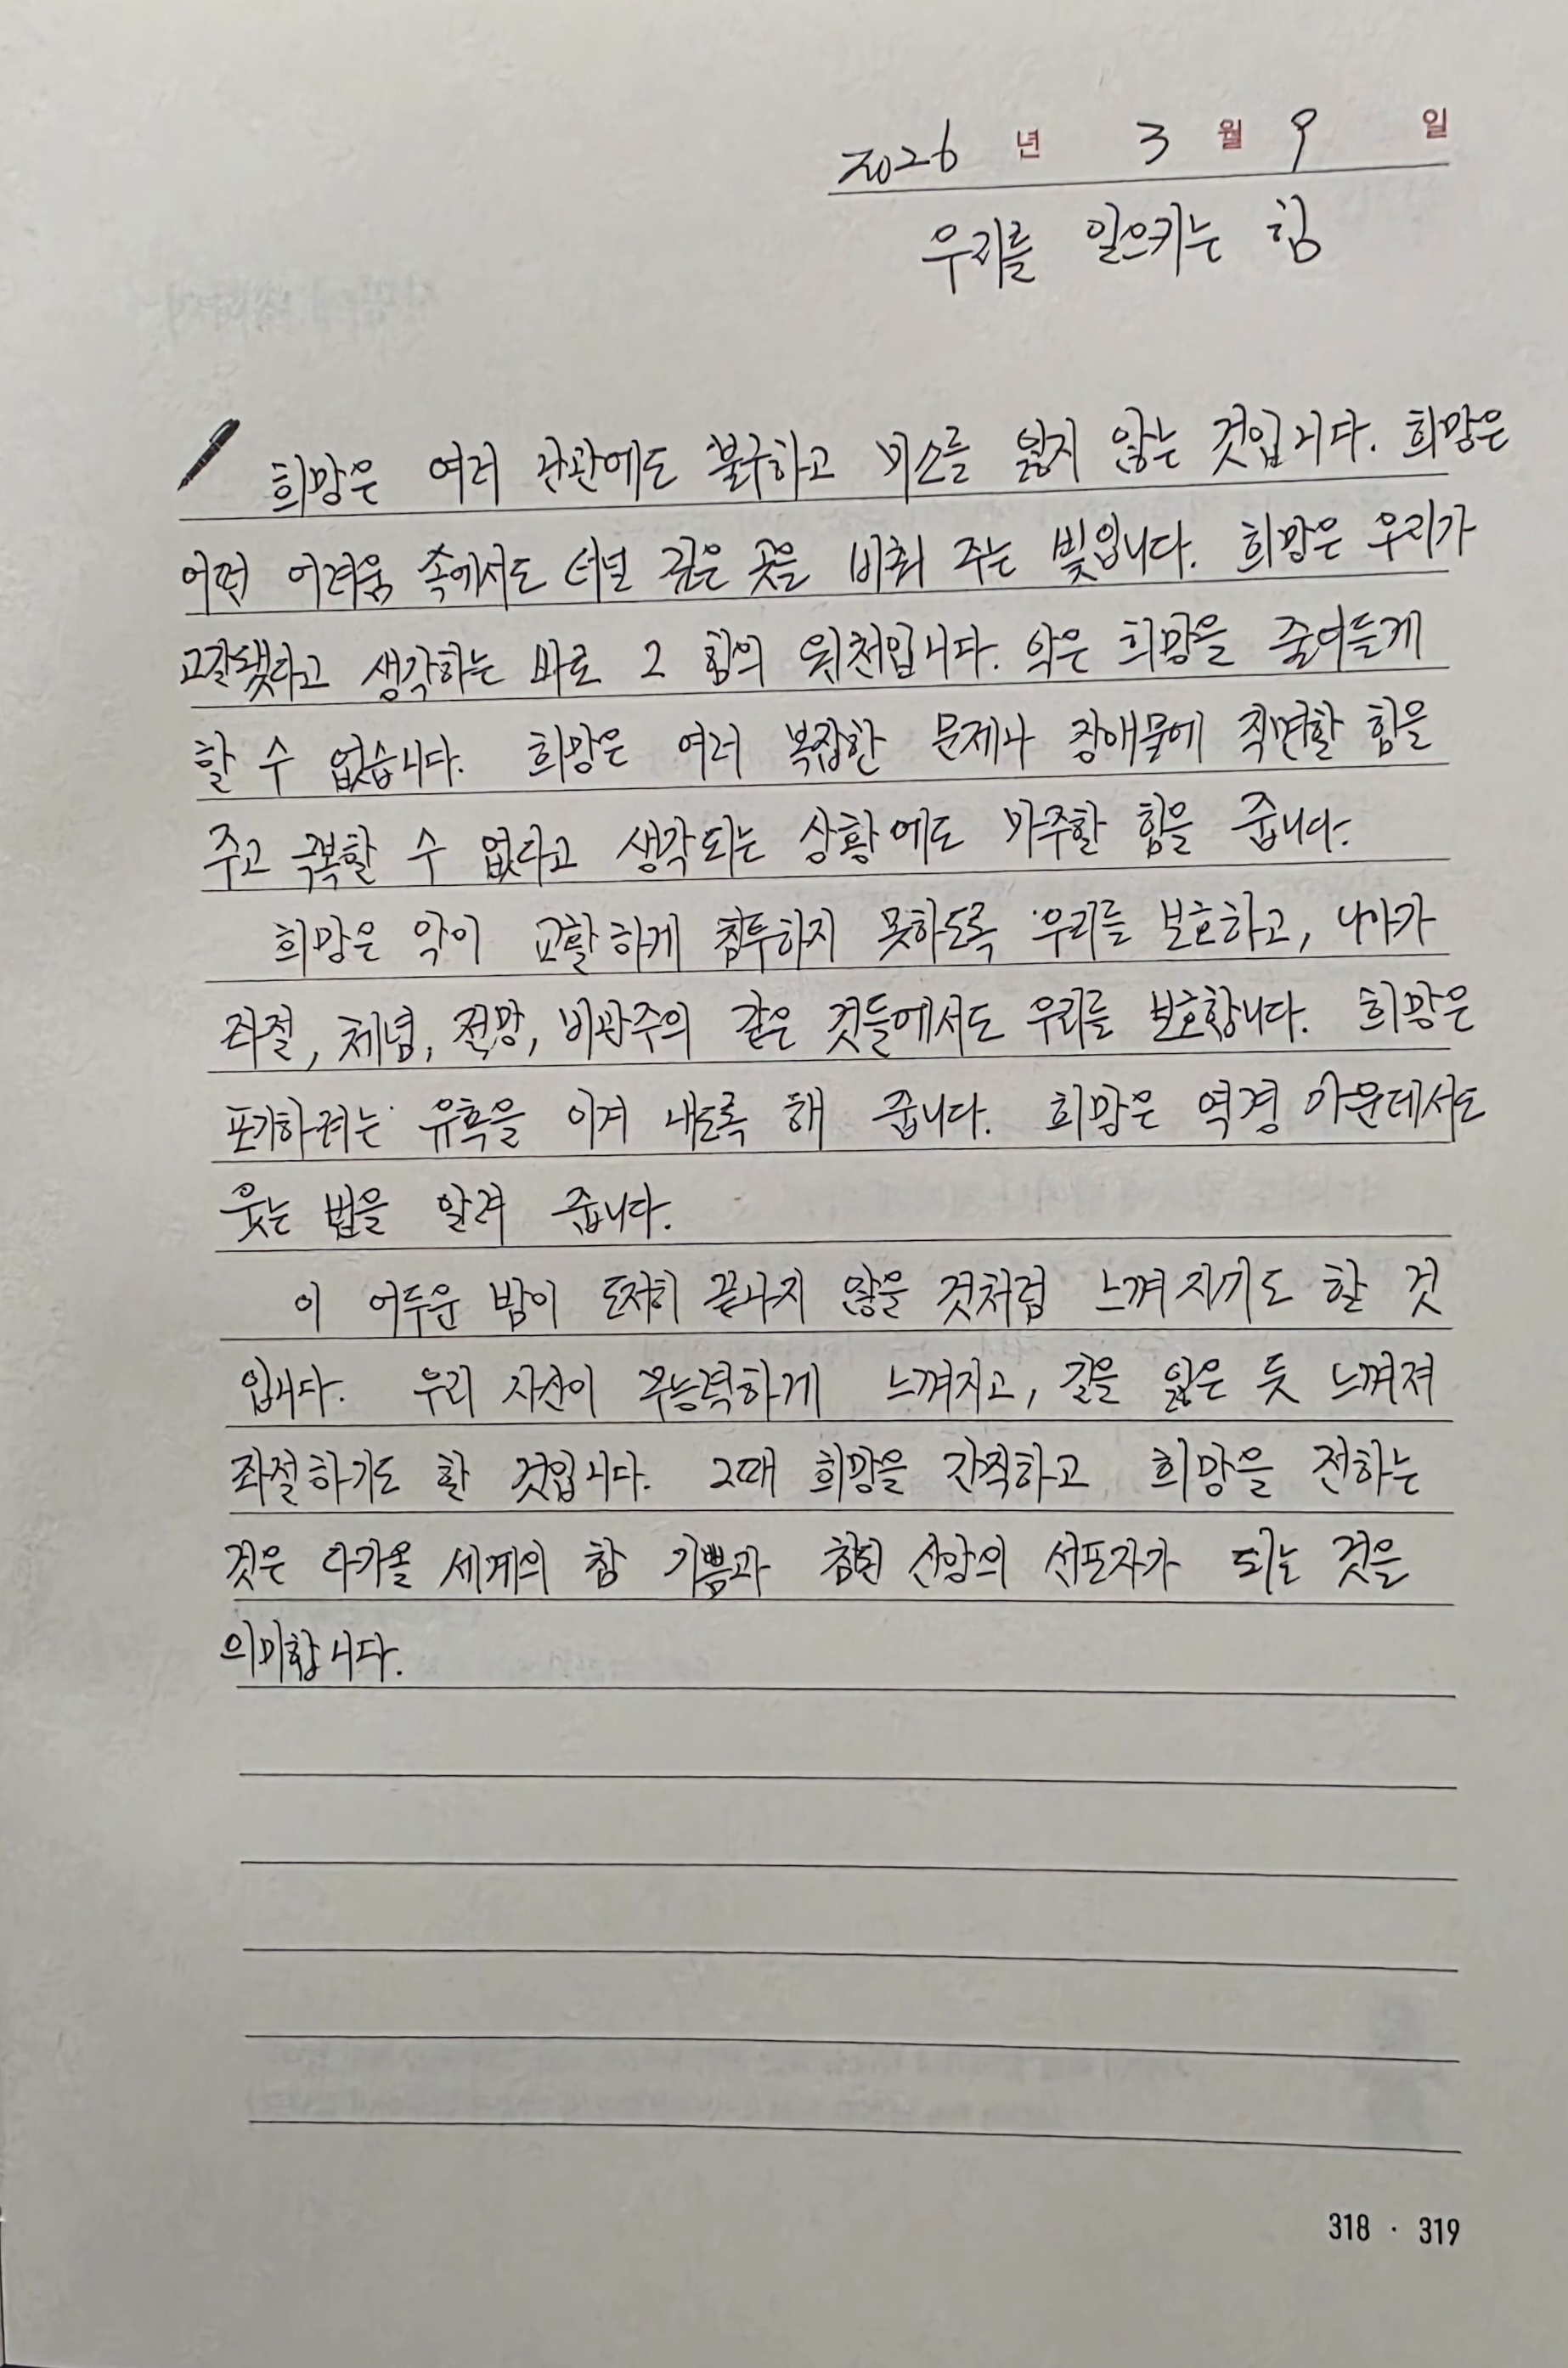 2026 년 3 월 9 일
우리를 일으키는 힘
희망은 여러 난관에도 불구하고 미소를 잃지 않는 것입니다. 희망은
어떤 어려움 속에서도 터널 깊은 곳을 비춰 주는 빛입니다. 희망은 우리가
고갈됐다고 생각하는 바로 그 힘의 원천입니다. 악은 희망을 줄어들게
할 수 없습니다. 희망은 여러 복잡한 문제나 장애물에 직면할 힘을
주고 극복할 수 없다고 생각되는 상황에도 마주할 힘을 줍니다.
희망은 악이 교활하게 침투하지 못하도록 우리를 보호하고, 나아가
좌절, 체념, 절망, 비관주의 같은 것들에서도 우리를 보호합니다. 희망은
포기하려는 유혹을 이겨 내도록 해 줍니다. 희망은 역경 가운데서도
웃는 법을 알려 줍니다.
이 어두운 밤이 도저히 끝나지 않을 것처럼 느껴지기도 할 것
입니다. 우리 자신이 무능력하게 느껴지고, 길을 잃은 듯 느껴져
좌절하기도 할 것입니다. 그때 희망을 간직하고 희망을 전하는
것은 다가올 세계의 참 기쁨과 참된 신앙의 선포자가 되는 것을
의미합니다.
318 · 319